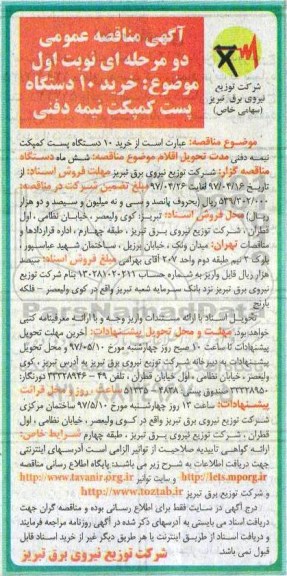 آگهی مناقصه عمومی
دو مرحله ای نوبت اول
موضوع: خرید ۱۰ دستگاه
پست کمپکت نیمه دفنی
شرکت توزیع
نیروی برق تبریز
(سهامی خاص)
موضوع مناقصه: عبارت است از خرید ۱۰ دستگاه پست کمپکت
نیمه دفنی مدت تحویل اقلام موضوع مناقصه: شش ماه دستگاه
مناقصه گزار: شرکت توزیع نیروی برق تبریز مهلت فروش اسناد: از
تاریخ ۹۷/۰۴/۱۶ لغایت ۹۷/۰۴/۲۶ مبلغ تضمین شرکت در مناقصه:
۵۳۶/۳۰۲/۰۰۰ ریال (بحروف پانصد و سی و نه میلیون و سیصد و دو هزار
ریال) محل فروش اسناد: تبریز: کوی ولیعصر، خیابان نظامی، اول
قطران، شرکت توزیع نیروی برق تبریز، طبقه چهارم، اداره قراردادها و
مناقصات تهران: میدان ونک، خیابان برزیل، ساختمان شهید عباسپور،
بلوک ۳ نیم طبقه دوم واحد ۲۰۷ آقای بهرامی مبلغ فروش اسناد: سیصد
هزار ریال قابل واریز به شماره حساب ۱۳۰۲۸۱۰۲۰۲۱۱ بنام شرکت توزیع
نیروی برق تبریز نزد بانک سرمایه شعبه تبریز واقع در کوی ولیعصر - فلکه
بارنج
تحویل اسناد با ارائه مستندات واریز وجه و با ارائه معرفینامه کتبی
خواهد بود. مهلت و محل تحویل پیشنهادات: آخرین مهلت تحویل
پیشنهادات تا ساعت ۱۰ صبح روز چهارشنبه مورخ ۹۷/۰۵/۱۰ و محل تحویل
پیشنهادات به دبیرخانه شرکت توزیع نیروی برق تبریز به آدرس تبریز، کوی
ولیعصر، خیابان نظامی، اول خیابان قطران، تلفن ۴۹ - ۳۳۳۲۸۹۴۶ دورنگار:
۳۳۳۲۸۹۵۰ صندوق پستی ۴۸۳۸ - ۵۱۳۳۵ ساعت، روز و محل قرائت
پیشنهادات: ساعت ۱۳ روز چهارشنبه مورخ ۹۷/۵/۱۰ ساختمان مرکزی
شرکت توزیع نیروی برق تبریز واقع در کوی ولیعصر، خیابان نظامی، اول
قطران، شرکت توزیع نیروی برق تبریز، طبقه چهارم شرایط خاص:
ارائه گواهی تاییدیه صلاحیت از توانیر الزامی است آدرسهای اینترنتی
جهت دریافت اطلاعات به شرح زیر می باشند: پایگاه اطلاع رسانی مناقصه
http://iets.mporg.ir و سایت توانیر http://www.tavanir.org.ir
و شرکت توزیع برق تبریز http://www.toztab.ir
درج آگهی در سایت فقط برای اطلاع رسانی بوده و مناقصه گران جهت
دریافت اسناد می بایستی به آدرسهای ذکر شده در آگهی روزنامه مراجعه فرمایند
و دریافت اسناد از طریق اینترنت یا هر طریق دیگر غیر از خرید اسناد قابل
قبول نمی باشد.
شرکت توزیع نیروی برق تبریز